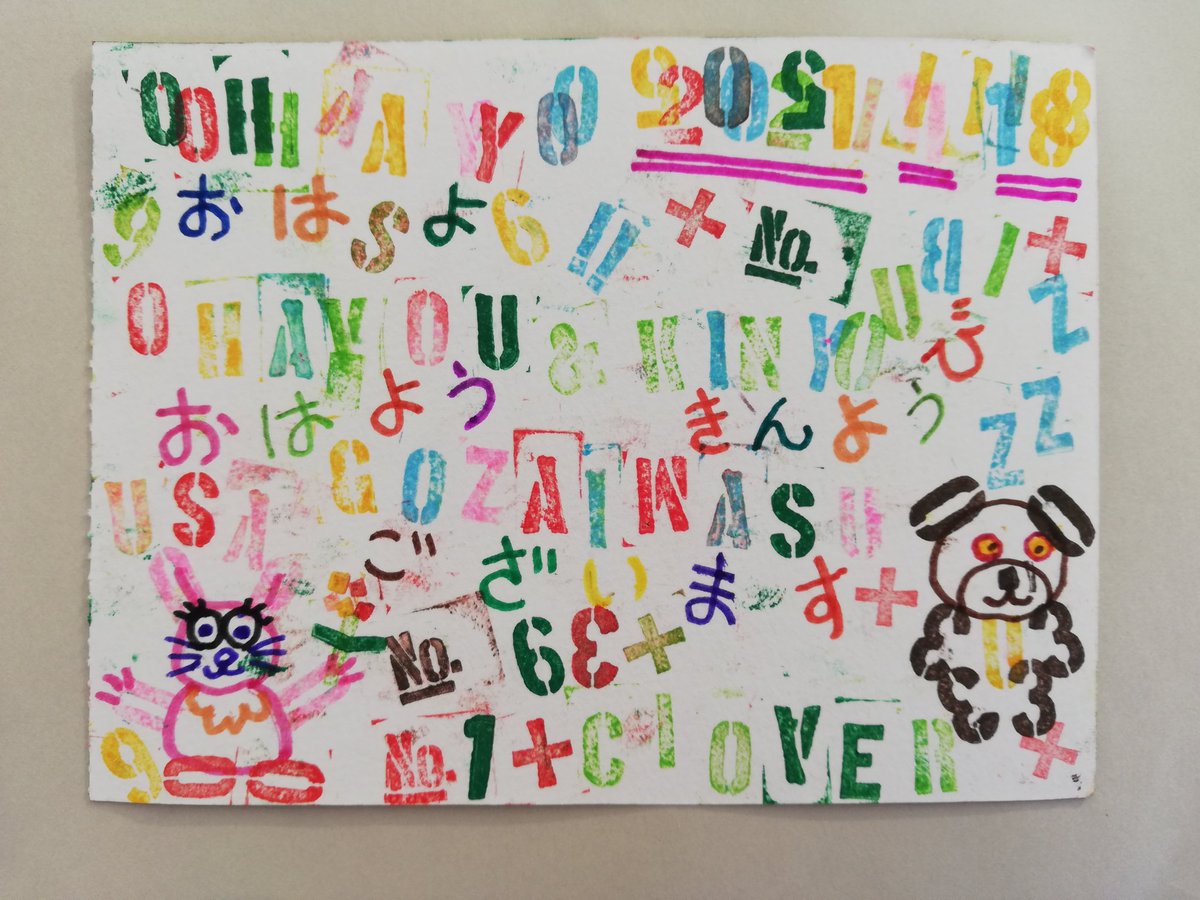 OHAYO 2021 1 18
9 おはSよ6 !! + No.
OHAYOU & KINYOU BI +
おはよう きんようび ZZZ
USA GOZAIMASU
ございます+
No. 63+
9 No.1+ClOVER+